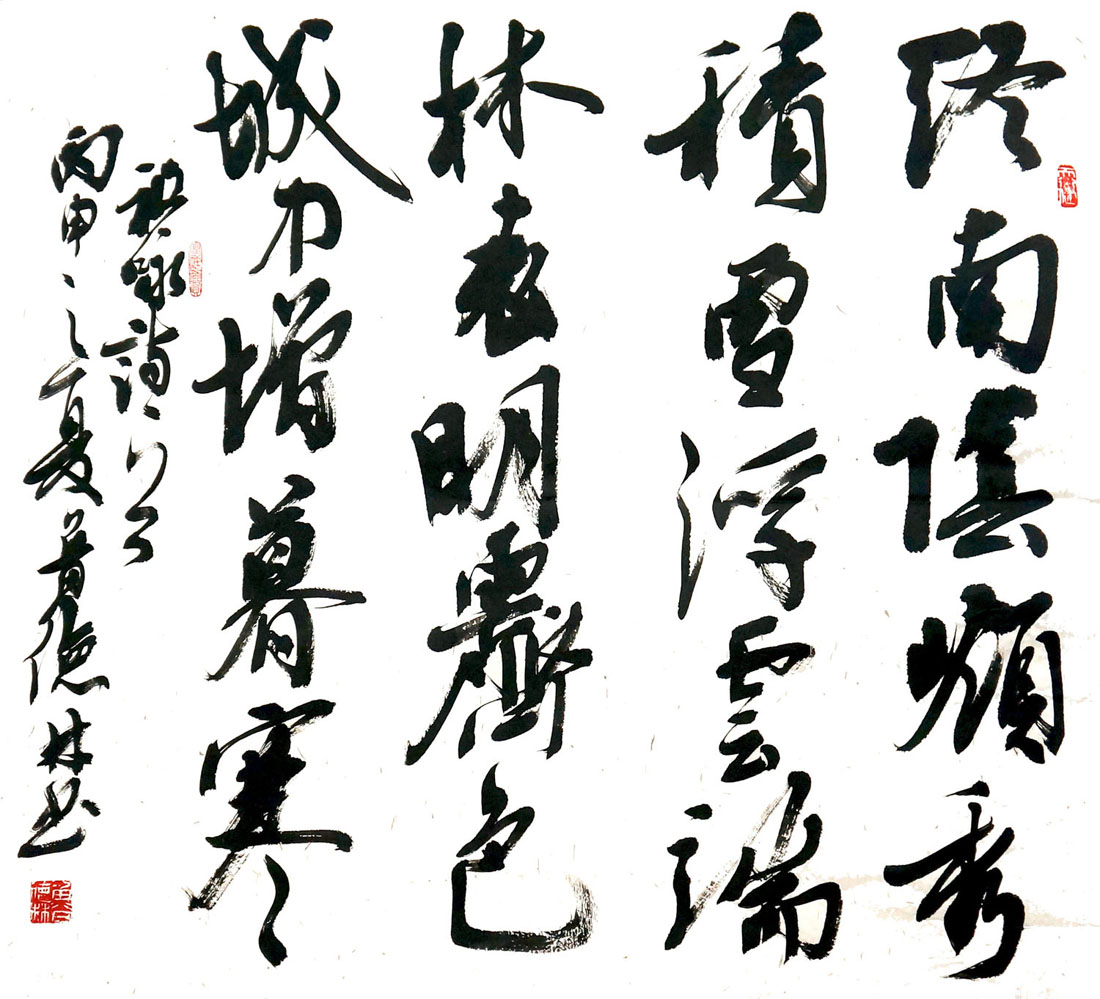 终南陰嶺秀
積雪浮雲端
林表明霽色
城中增暮寒
祖詠詩
丙申之夏德林书
德林